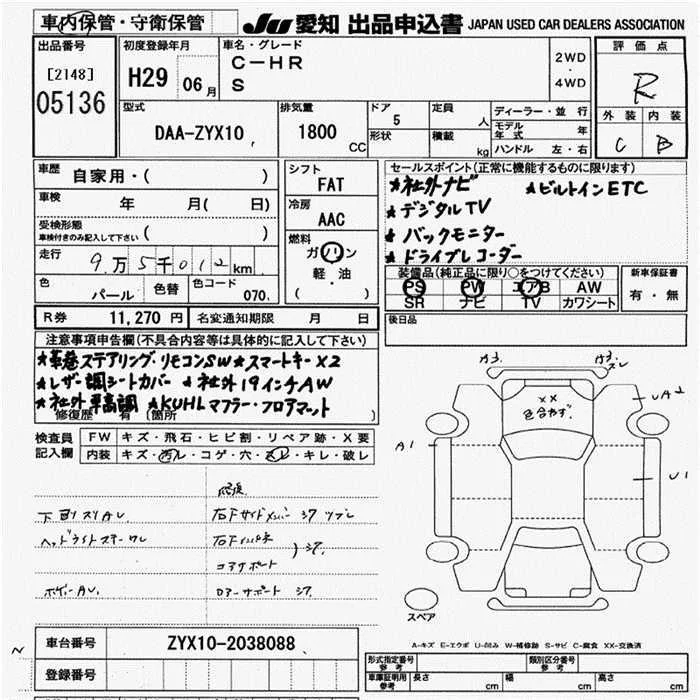 車内保管・守衛保管
JU 愛知 出品申込書 JAPAN USED CAR DEALERS ASSOCIATION
出品番号
[2148]
05136
初度登録年月
H29 06月
車名・グレード
C-HR
S
2WD
・
4WD
評価点
R
外装 内装
C B
型式
DAA-ZYX10
排気量
1800
CC
ドア
5
形状
定員
人
積載
kg
ディーラー・並行
モデル年式 年
ハンドル 左・右
車歴
自家用・( )
車検 年 月( 日)
受検形態
車検付きのみ記入して下さい ( )
走行 9万5千012km
色 パール 色替 色コード 070
シフト
FAT
冷房
AAC
燃料
ガソリン
軽・油
( )
セールスポイント(正常に機能するものに限ります)
★社外ナビ ★ビルトインETC
★デジタルTV
★バックモニター
★ドライブレコーダー
装備品(純正品に限り○をつけてください)
PS PW エアB AW
SR ナビ TV カワシート
新車保証書
有・無
後日品
R券 11,270円 名変通知期限 月 日
注意事項申告欄(不具合内容は具体的に記入して下さい)
★革巻ステアリング・リモコンSW★スマートキー×2
★レザー調シートカバー ★社外19インチAW
★社外車高調 ★KUHLマフラー・フロアマット
修復歴 有 (箇所 )
検査員記入欄
FW キズ・飛石・ヒビ割・リペア跡・X要
内装 キズ・汚レ・コゲ・穴・スレ・キレ・破レ
修復
下回りスリAU
ヘッドライトステー
右Fサイドメンバー
右Fインパネ
コアサポート
ロアーサポート
A3
A3
スレ
××
色合わず
UA2
A1
U1
スペア
A-キズ E-エクボ U-凹み W-補修跡 S-サビ C-腐食 XX-交換済
車台番号 ZYX10-2038088
登録番号
型式指定番号
参考
類別区分番号
参考
車庫証明用
参考
長さ cm 幅 cm 高さ cm